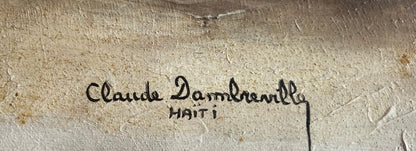 Claude Dambreville
HAÏTI